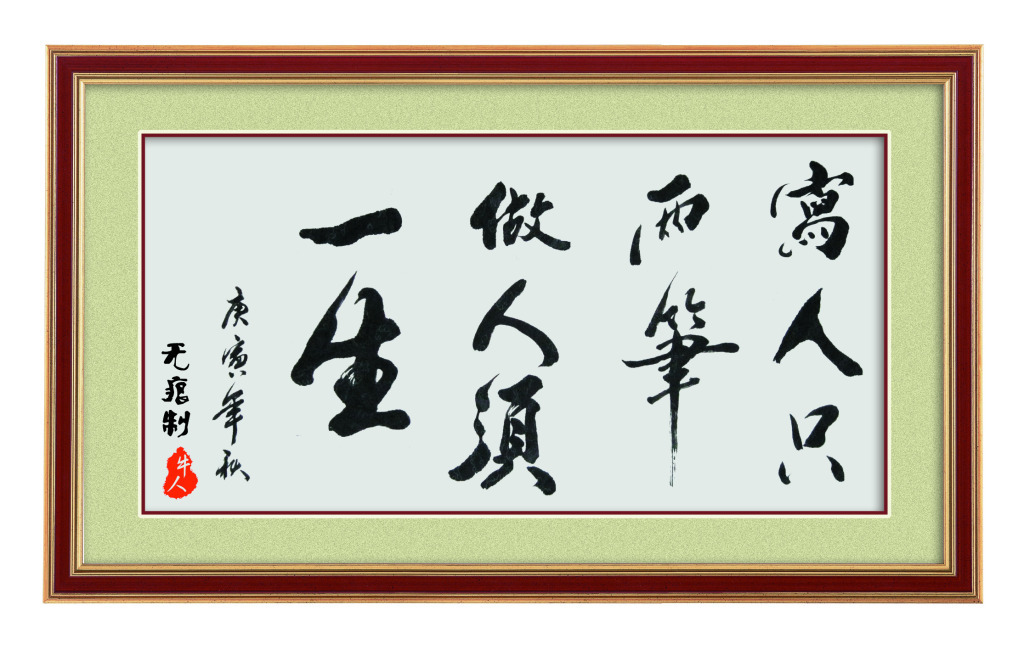 寫人只
兩筆
做人須
一生
庚寅年秋
无痕制
牛人